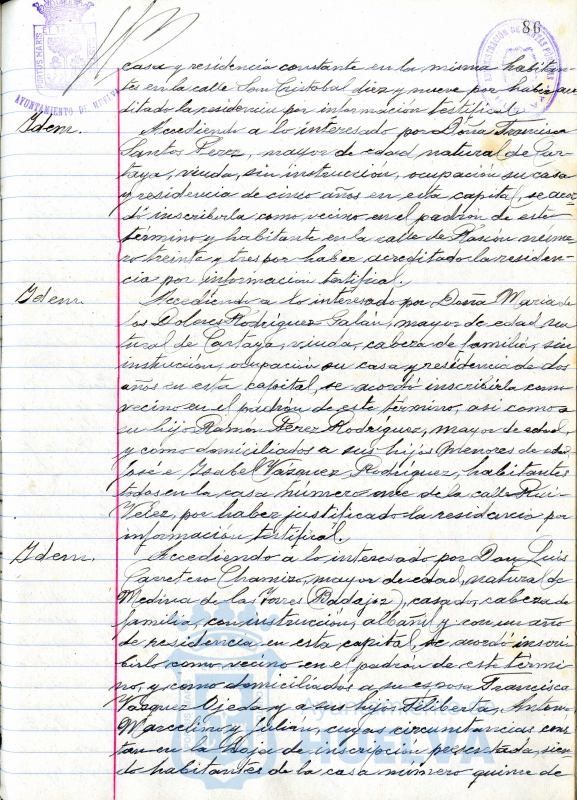 86
AYUNTAMIENTO DE HUELVA
casa y residencia constante en la misma habitan-
tes en la calle San Cristobal diez y nueve por haber acre-
ditado la residencia por información testifical.
Idem. Accediendo a lo interesado por Doña Francisca
Santos Perez, mayor de edad natural de Car-
taya, viuda, sin instrucción, ocupación su casa
y residencia de cinco años en esta capital, se acor-
dó inscribirla como vecino en el padrón de este
término y habitante en la calle de Rascón núme-
ro treinta y tres por haber acreditado la residen-
cia por informacion testifical.
Idem. Accediendo a lo interesado por Doña Maria de
los Dolores Rodríguez Galán, mayor de edad na-
tural de Cartaya, viuda, cabeza de familia, sin
instrucción, ocupación su casa y residencia de dos
años en esta capital, se acordó inscribirla como
vecino en el padrón de este término, asi como a
su hijo Ramón Pérez Rodríguez, mayor de edad,
y como domiciliados a sus hijos Menores de edad
José e Isabel Vázquez Rodríguez, habitantes
todos en la casa número once de la calle Rui-
Velez, por haber justificado la residencia por
información testifical.
Idem. Accediendo a lo interesado por Don Luis
Carretero Chamizo, mayor de edad, natural de
Medina de las Torres (Badajoz), casado, cabeza de
familia, con instrucción, albañil y con un año
de residencia en esta capital, se acordó inscri-
birlo como vecino en el padrón de este térmi-
no, y como domiciliados a su esposa Francisca
Vázquez Ojeda y a sus hijos Feliberta, Antonio
Marcelino y Julián, cuyas circunstancias cons-
tan en la hoja de inscripción presentada, sien-
do habitantes de la casa número quince de
HUELVA